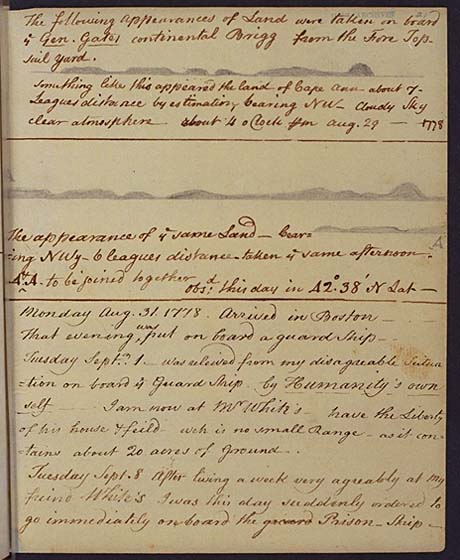 The following appearances of Land were taken on board
ye Gen. Gates continental Brigg from the Fore Top-
sail yard.
Something like this appeared the land of Cape Ann - about 7-
Leagues distance by estimation, bearing NW- Cloudy Sky
clear atmosphere about 4 oClock Aug. 29 — 1778
A
The appearance of ye same Land — bear=
=ing NWy 6 leagues distance - taken ye same afternoon.
A. to be joined together
obsd. this day in 42° 38' N Lat —
Monday Aug. 31. 1778. Arrived in Boston —
That evening, was put on board a guard Ship —
Tuesday Sept. 1. was releived from my disagreable Situa
=tion on board ye Guard Ship by Humanity's own
self — I am now at Mr White's — have the Liberty
of his house & field - wch is no small Range — as it con-
tains about 20 acres of ground —.
Tuesday Sept. 8 After living a week very agreably at my
freind White's I was this day suddenly ordered to
go immediately on board the guard Prison-Ship —